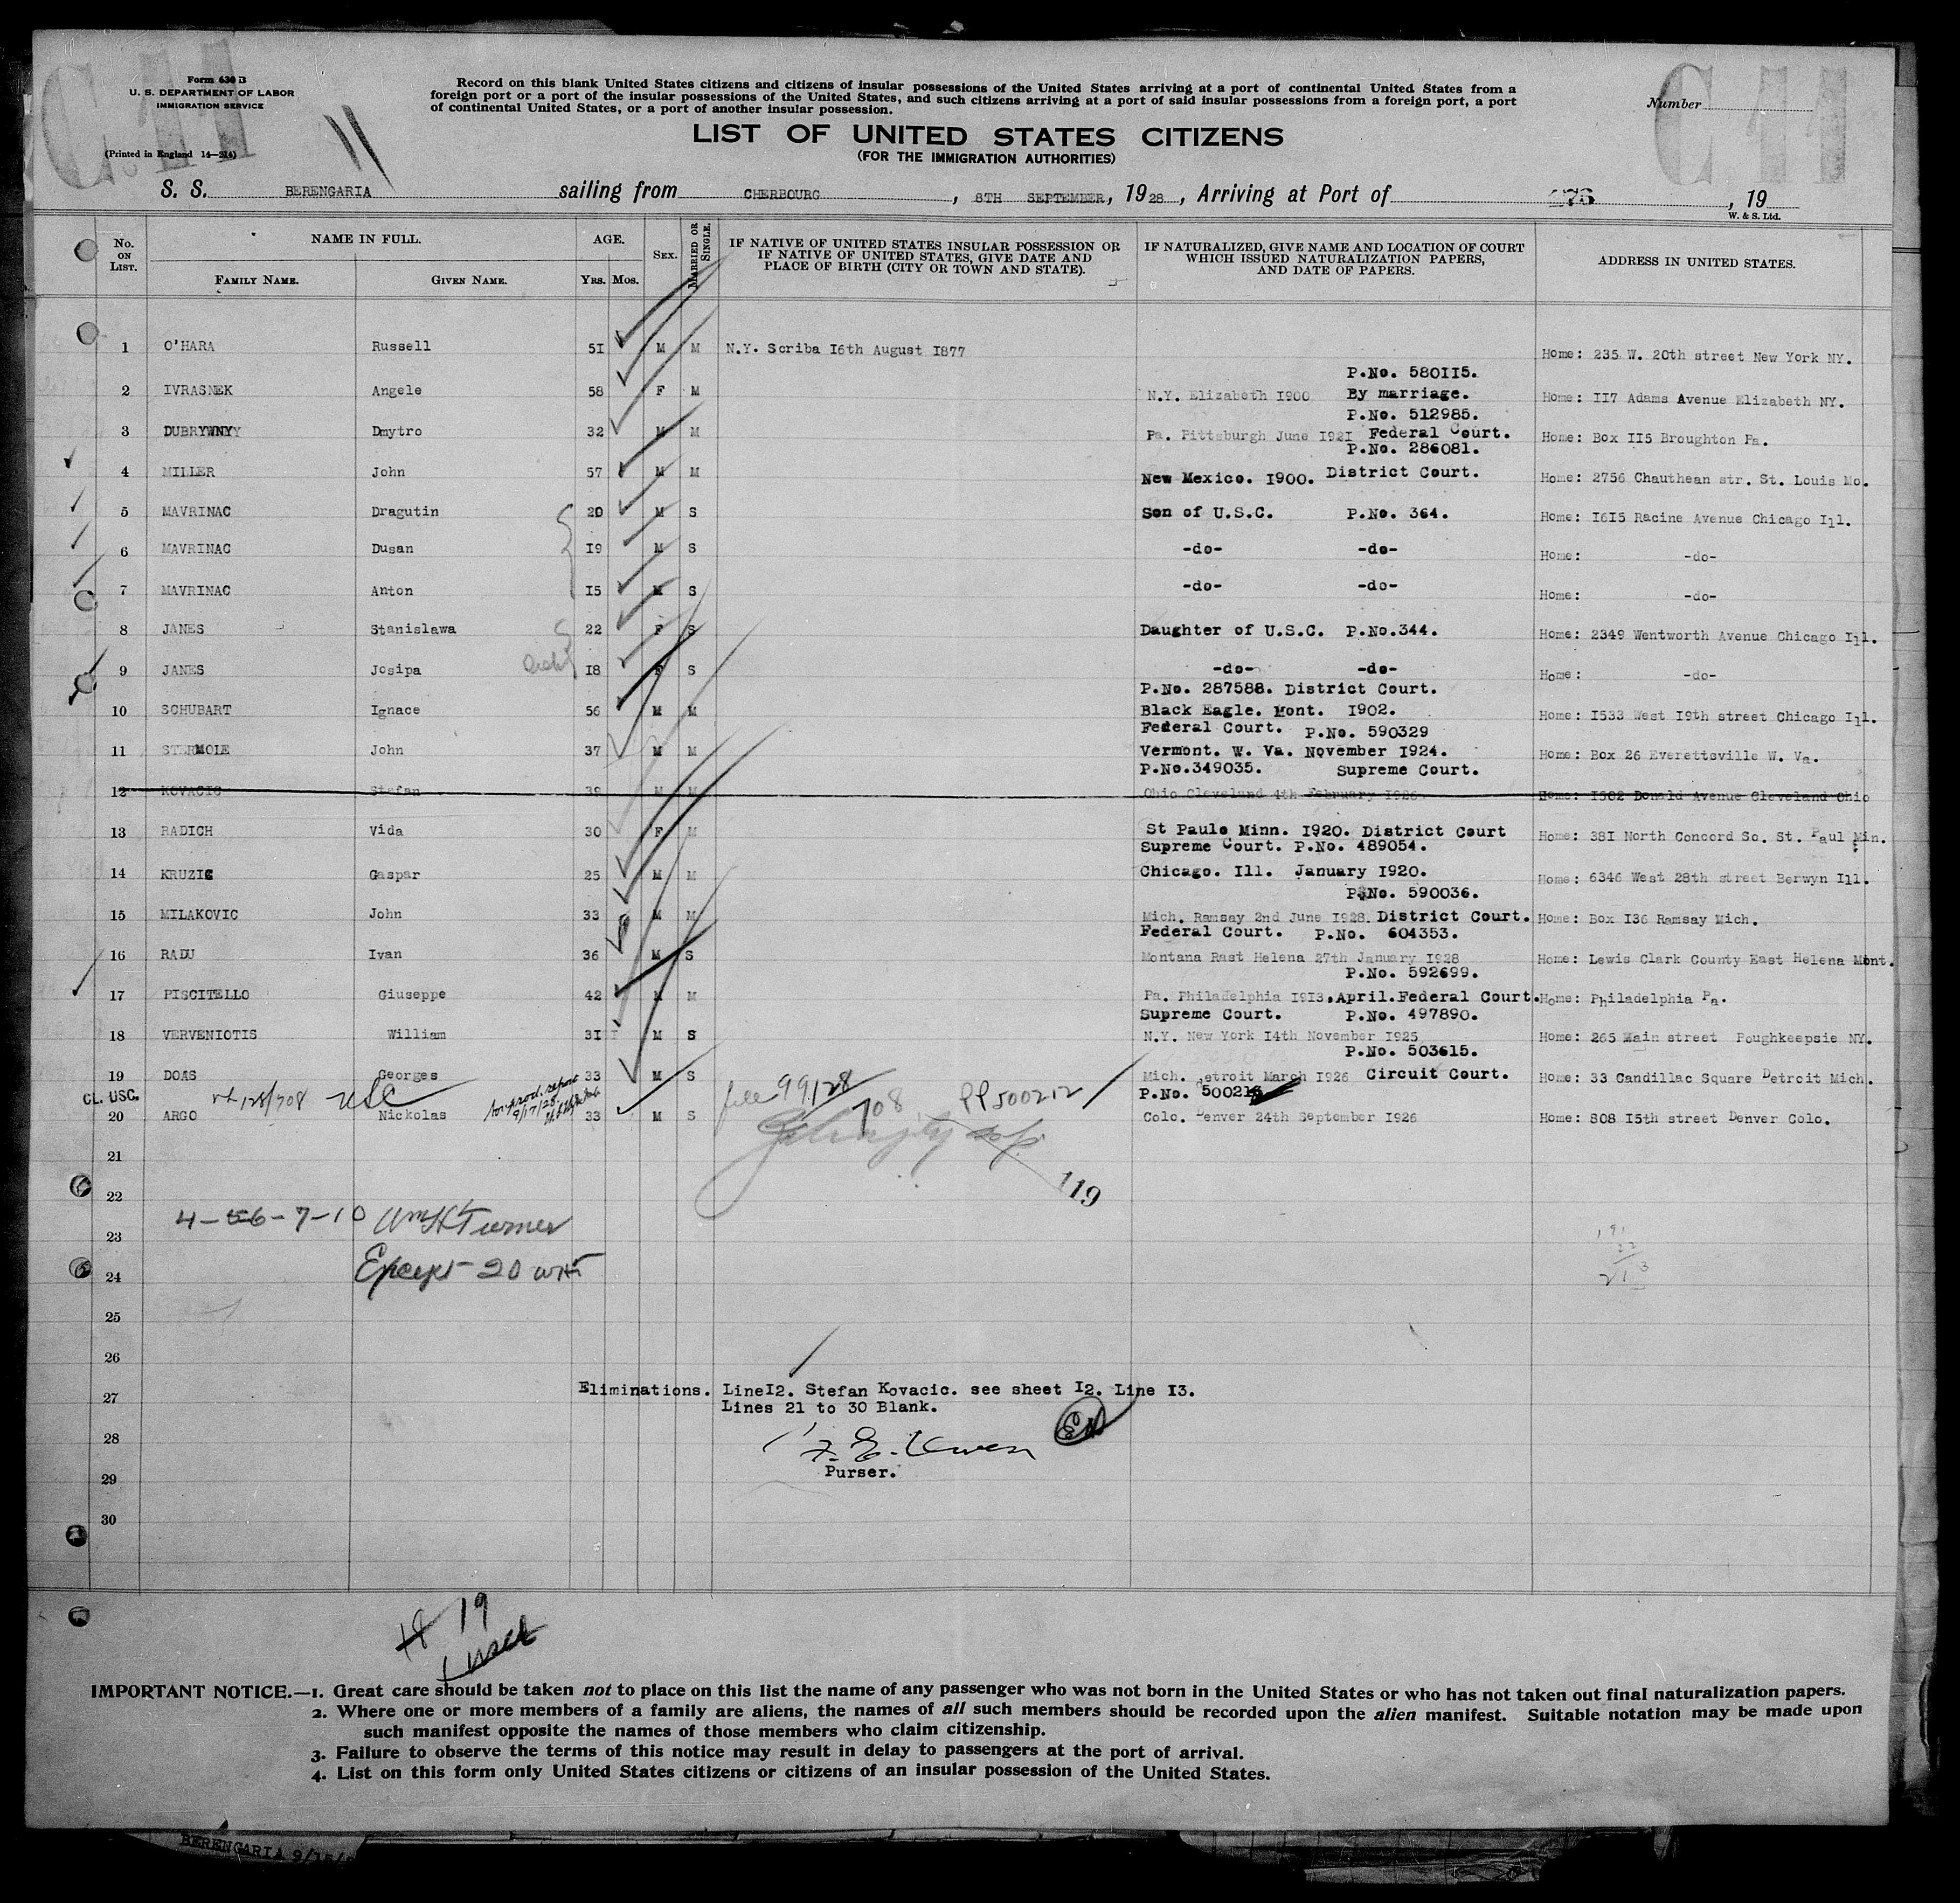 C.11
Form 630 B
U. S. DEPARTMENT OF LABOR
IMMIGRATION SERVICE
(Printed in England 14—214)
11
Record on this blank United States citizens and citizens of insular possessions of the United States arriving at a port of continental United States from a
foreign port or a port of the insular possessions of the United States, and such citizens arriving at a port of said insular possessions from a foreign port, a port
of continental United States, or a port of another insular possession.
Number
C 11
LIST OF UNITED STATES CITIZENS
(FOR THE IMMIGRATION AUTHORITIES)
S. S. BERENGARIA sailing from CHERBOURG, 8TH SEPTEMBER, 1928, Arriving at Port of 176, 19
W. & S. Ltd.
No. ON LIST. NAME IN FULL. AGE. SEX. MARRIED OR SINGLE. IF NATIVE OF UNITED STATES INSULAR POSSESSION OR IF NATIVE OF UNITED STATES, GIVE DATE AND PLACE OF BIRTH (CITY OR TOWN AND STATE). IF NATURALIZED, GIVE NAME AND LOCATION OF COURT WHICH ISSUED NATURALIZATION PAPERS, AND DATE OF PAPERS. ADDRESS IN UNITED STATES.
FAMILY NAME. GIVEN NAME. YRS. MOS.
1 O'HARA Russell 51 M M N.Y. Scriba 16th August 1877 Home: 235 W. 20th street New York NY.
P.No. 580115.
2 IVRASNEK Angele 58 F M N.Y. Elizabeth 1900 By marriage. Home: 117 Adams Avenue Elizabeth NY.
P.No. 512985.
3 DUBRYWNYY Dmytro 32 M M Pa. Pittsburgh June 1921 Federal Court. Home: Box 115 Broughton Pa.
P.No. 286081.
4 MILLER John 57 M M New Mexico. 1900. District Court. Home: 2756 Chauthean str. St. Louis Mo.
5 MAVRINAC Dragutin 20 M S Son of U.S.C. P.No. 364. Home: 1615 Racine Avenue Chicago Ill.
6 MAVRINAC Dusan 19 M S -do- -do- Home: -do-
7 MAVRINAC Anton 15 M S -do- -do- Home: -do-
8 JANES Stanislawa 22 F S Daughter of U.S.C. P.No.344. Home: 2349 Wentworth Avenue Chicago Ill.
9 JANES Josipa 18 F S -do- -do- Home: -do-
P.No. 287588. District Court.
10 SCHUBART Ignace 56 M M Black Eagle. Mont. 1902. Home: 1533 West 19th street Chicago Ill.
Federal Court. P.No. 590329
11 STERMOLE John 37 M M Vermont. W. Va. November 1924. Home: Box 26 Everettsville W. Va.
P.No.349035. Supreme Court.
12 KOVACIC Stefan 39 M M Ohio Cleveland 4th February 1926 Home: 1502 Donald Avenue Cleveland Ohio
13 RADICH Vida 30 F M St Pauls Minn. 1920. District Court Home: 381 North Concord So. St. Paul Min.
Supreme Court. P.No. 489054.
14 KRUZIC Gaspar 25 M M Chicago. Ill. January 1920. Home: 6346 West 28th street Berwyn Ill.
P.No. 590036.
15 MILAKOVIC John 33 M M Mich. Ramsay 2nd June 1928. District Court. Home: Box 136 Ramsay Mich.
Federal Court. P.No. 604353.
16 RADU Ivan 36 M S Montana Rast Helena 27th January 1928 Home: Lewis Clark County East Helena Mont.
P.No. 592699.
17 PISCITELLO Giuseppe 42 M M Pa. Philadelphia 1913, April. Federal Court. Home: Philadelphia Pa.
Supreme Court. P.No. 497890.
18 VERVENIOTIS William 31 M S N.Y. New York 14th November 1925 Home: 265 Main street Poughkeepsie NY.
P.No. 503615.
19 DOAS Georges 33 M S Mich. Detroit March 1926 Circuit Court. Home: 33 Candillac Square Detroit Mich.
CL. USC. USC file 99128 PP500212 P.No. 50021
20 ARGO Nickolas 33 M S 708 Colo. Denver 24th September 1926 Home: 808 15th street Denver Colo.
21
22
119
4-56-7-10 Wm H Turner
23
Except 20 WHT
24
25
26
27 Eliminations. Line12. Stefan Kovacic. see sheet 12. Line 13.
Lines 21 to 30 Blank.
28
Purser.
29
30
19
1 USCL
IMPORTANT NOTICE.—1. Great care should be taken not to place on this list the name of any passenger who was not born in the United States or who has not taken out final naturalization papers.
2. Where one or more members of a family are aliens, the names of all such members should be recorded upon the alien manifest. Suitable notation may be made upon
such manifest opposite the names of those members who claim citizenship.
3. Failure to observe the terms of this notice may result in delay to passengers at the port of arrival.
4. List on this form only United States citizens or citizens of an insular possession of the United States.
BERENGARIA 9/15/